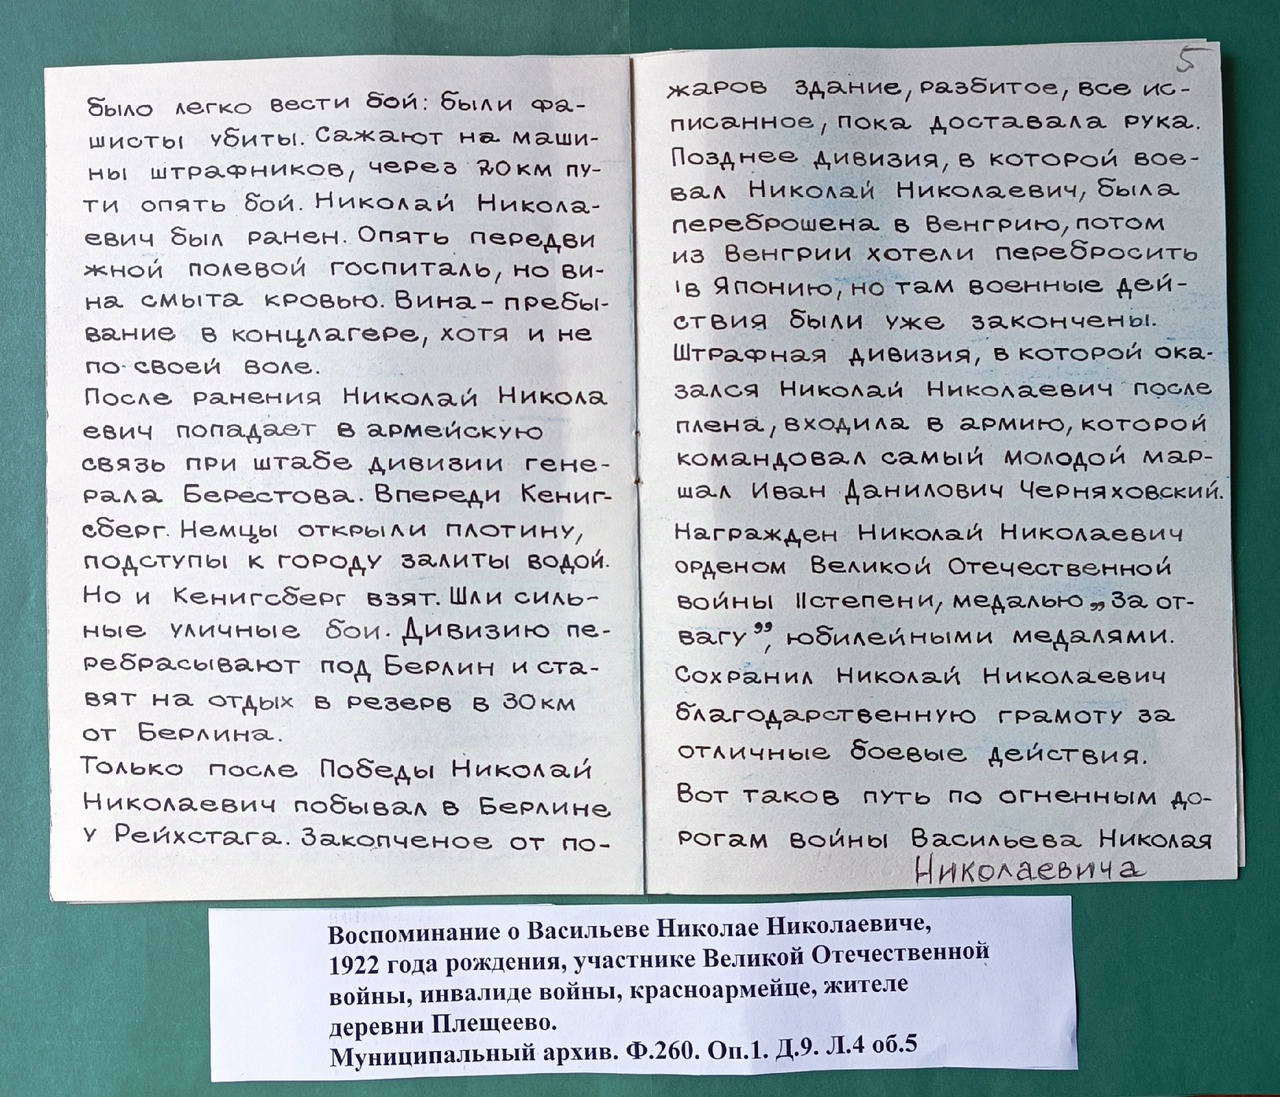 было легко вести бой: были фа-
шисты убиты. Сажают на маши-
ны штрафников, через 20км пу-
ти опять бой. Николай Никола-
евич был ранен. Опять передви
жной полевой госпиталь, но ви-
на смыта кровью. Вина - пребы-
вание в концлагере, хотя и не
по своей воле.
После ранения Николай Никола
евич попадает в армейскую
связь при штабе дивизии гене-
рала Берестова. Впереди Кениг-
сберг. Немцы открыли плотину,
подступы к городу залиты водой.
Но и Кенигсберг взят. Шли силь-
ные уличные бои. Дивизию пе-
ребрасывают под Берлин и ста-
вят на отдых в резерв в 30км
от Берлина.
Только после Победы Николай
Николаевич побывал в Берлине
у Рейхстага. Закопченое от по-
5
жаров здание, разбитое, все ис-
писанное, пока доставала рука.
Позднее дивизия, в которой вое-
вал Николай Николаевич, была
переброшена в Венгрию, потом
из Венгрии хотели перебросить
в Японию, но там военные дей-
ствия были уже закончены.
Штрафная дивизия, в которой ока-
зался Николай Николаевич после
плена, входила в армию, которой
командовал самый молодой мар-
шал Иван Данилович Черняховский.
Награжден Николай Николаевич
орденом Великой Отечественной
войны II степени, медалью „За от-
вагу”, юбилейными медалями.
Сохранил Николай Николаевич
благодарственную грамоту за
отличные боевые действия.
Вот таков путь по огненным до-
рогам войны Васильева Николая
Николаевича
Воспоминание о Васильеве Николае Николаевиче,
1922 года рождения, участнике Великой Отечественной
войны, инвалиде войны, красноармейце, жителе
деревни Плещеево.
Муниципальный архив. Ф.260. Оп.1. Д.9. Л.4 об.5